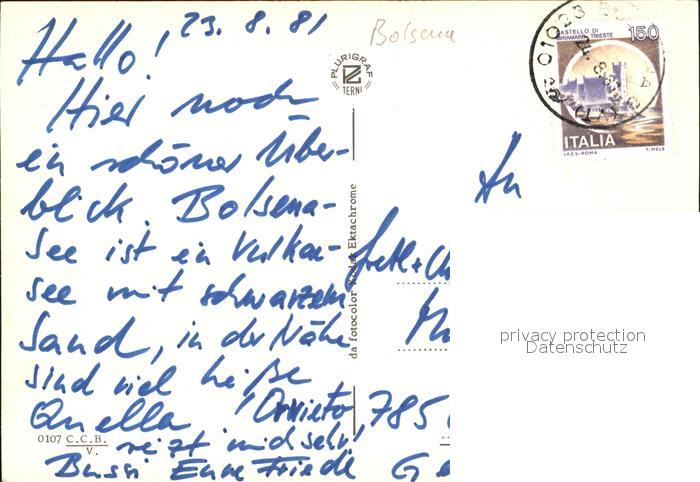 23. 8. 81
Bolsena
Hallo!
Hier noch
ein schöner Über-
blick. Bolsena-
See ist ein Vulkan-
see mit schwarzem
Sand, in der Nähe
sind viel heiße
Quellen! Orvieto
reizt mich sehr!
Bussi Eure Friedl
PLURIGRAF
TERNI
da fotocolor Kodak Ektachrome
0107 C.C.B.
V.
01023
CASTELLO DI
MIRAMARE TRIESTE
150
ITALIA
I.P.Z.S.-ROMA T. MELE
An
785
privacy protection
Datenschutz